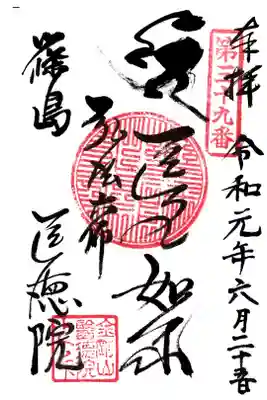 奉拝 令和元年六月二十五日
第三十九番
医王如来
弘法大師
篠島 医徳院
金剛山
醫徳院